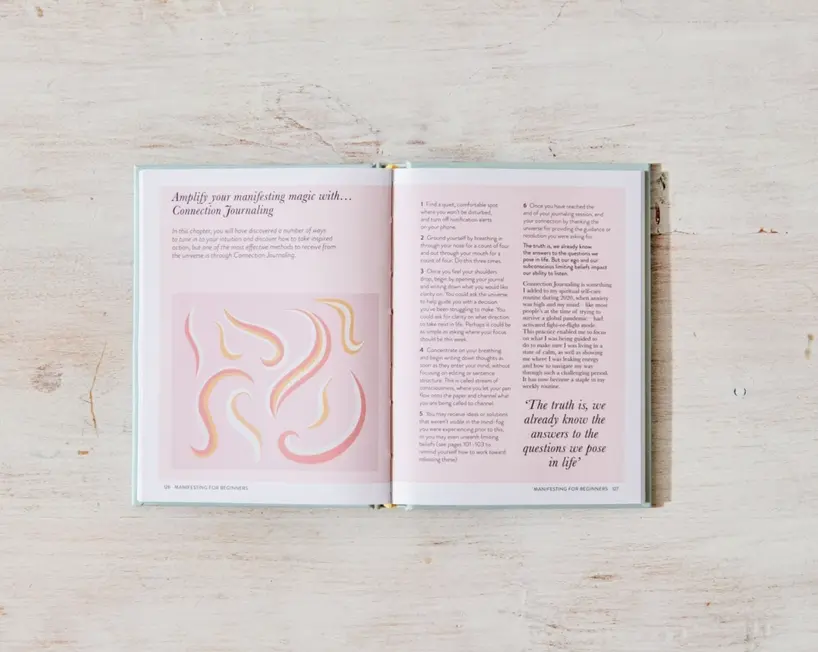 Amplify your manifesting magic with...
Connection Journaling
In this chapter, you will have discovered a number of ways
to tune in to your intuition and discover how to take inspired
action, but one of the most effective methods to receive from
the universe is through Connection Journaling.
MANIFESTING FOR BEGINNERS
1 Find a quiet, comfortable spot
where you won't be disturbed,
and turn off notification alerts
on your phone.
2 Ground yourself by breathing in
through your nose for a count of four
and out through your mouth for a
count of four. Do this three times.
3 Once you feel your shoulders
drop, begin by opening your journal
and writing down what you would like
clarity on. You could ask the universe
to help guide you with a decision
you've been struggling to make. You
could ask for clarity on what direction
to take next in life. Perhaps it could be
as simple as asking where your focus
should be this week.
4 Concentrate on your breathing
and begin writing down thoughts as
soon as they enter your mind, without
focusing on editing or sentence
structure. This is called stream of
consciousness, where you let your pen
flow onto the paper and channel what
you are being called to channel.
5 You may receive ideas or solutions
that weren't visible in the mind-fog
you were experiencing prior to this,
or you may even unearth limiting
beliefs (see pages 101–103 to
remind yourself how to work toward
releasing these)
6 Once you have reached the
end of your journaling session, end
your connection by thanking the
universe for providing the guidance or
resolution you were asking for.
The truth is, we already know
the answers to the questions we
pose in life. But our ego and our
subconscious limiting beliefs impact
our ability to listen.
Connection Journaling is something
I added to my spiritual self-care
routine during 2020, when anxiety
was high and my mind – like most
people's at the time of trying to
survive a global pandemic – had
activated fight-or-flight mode.
This practice enabled me to focus
on what I was being guided to
do to make sure I was living in a
state of calm, as well as showing
me where I was leaking energy
and how to navigate my way
through such a challenging period.
It has now become a staple in my
weekly routine.
'The truth is, we
already know the
answers to the
questions we pose
in life'
MANIFESTING FOR BEGINNERS 127